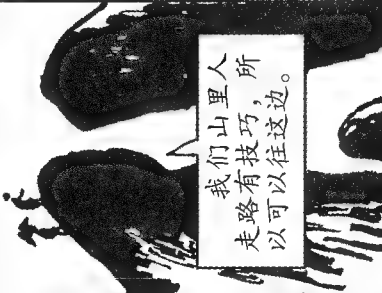 我们山里人
走路有技巧，所
以可以往这边。